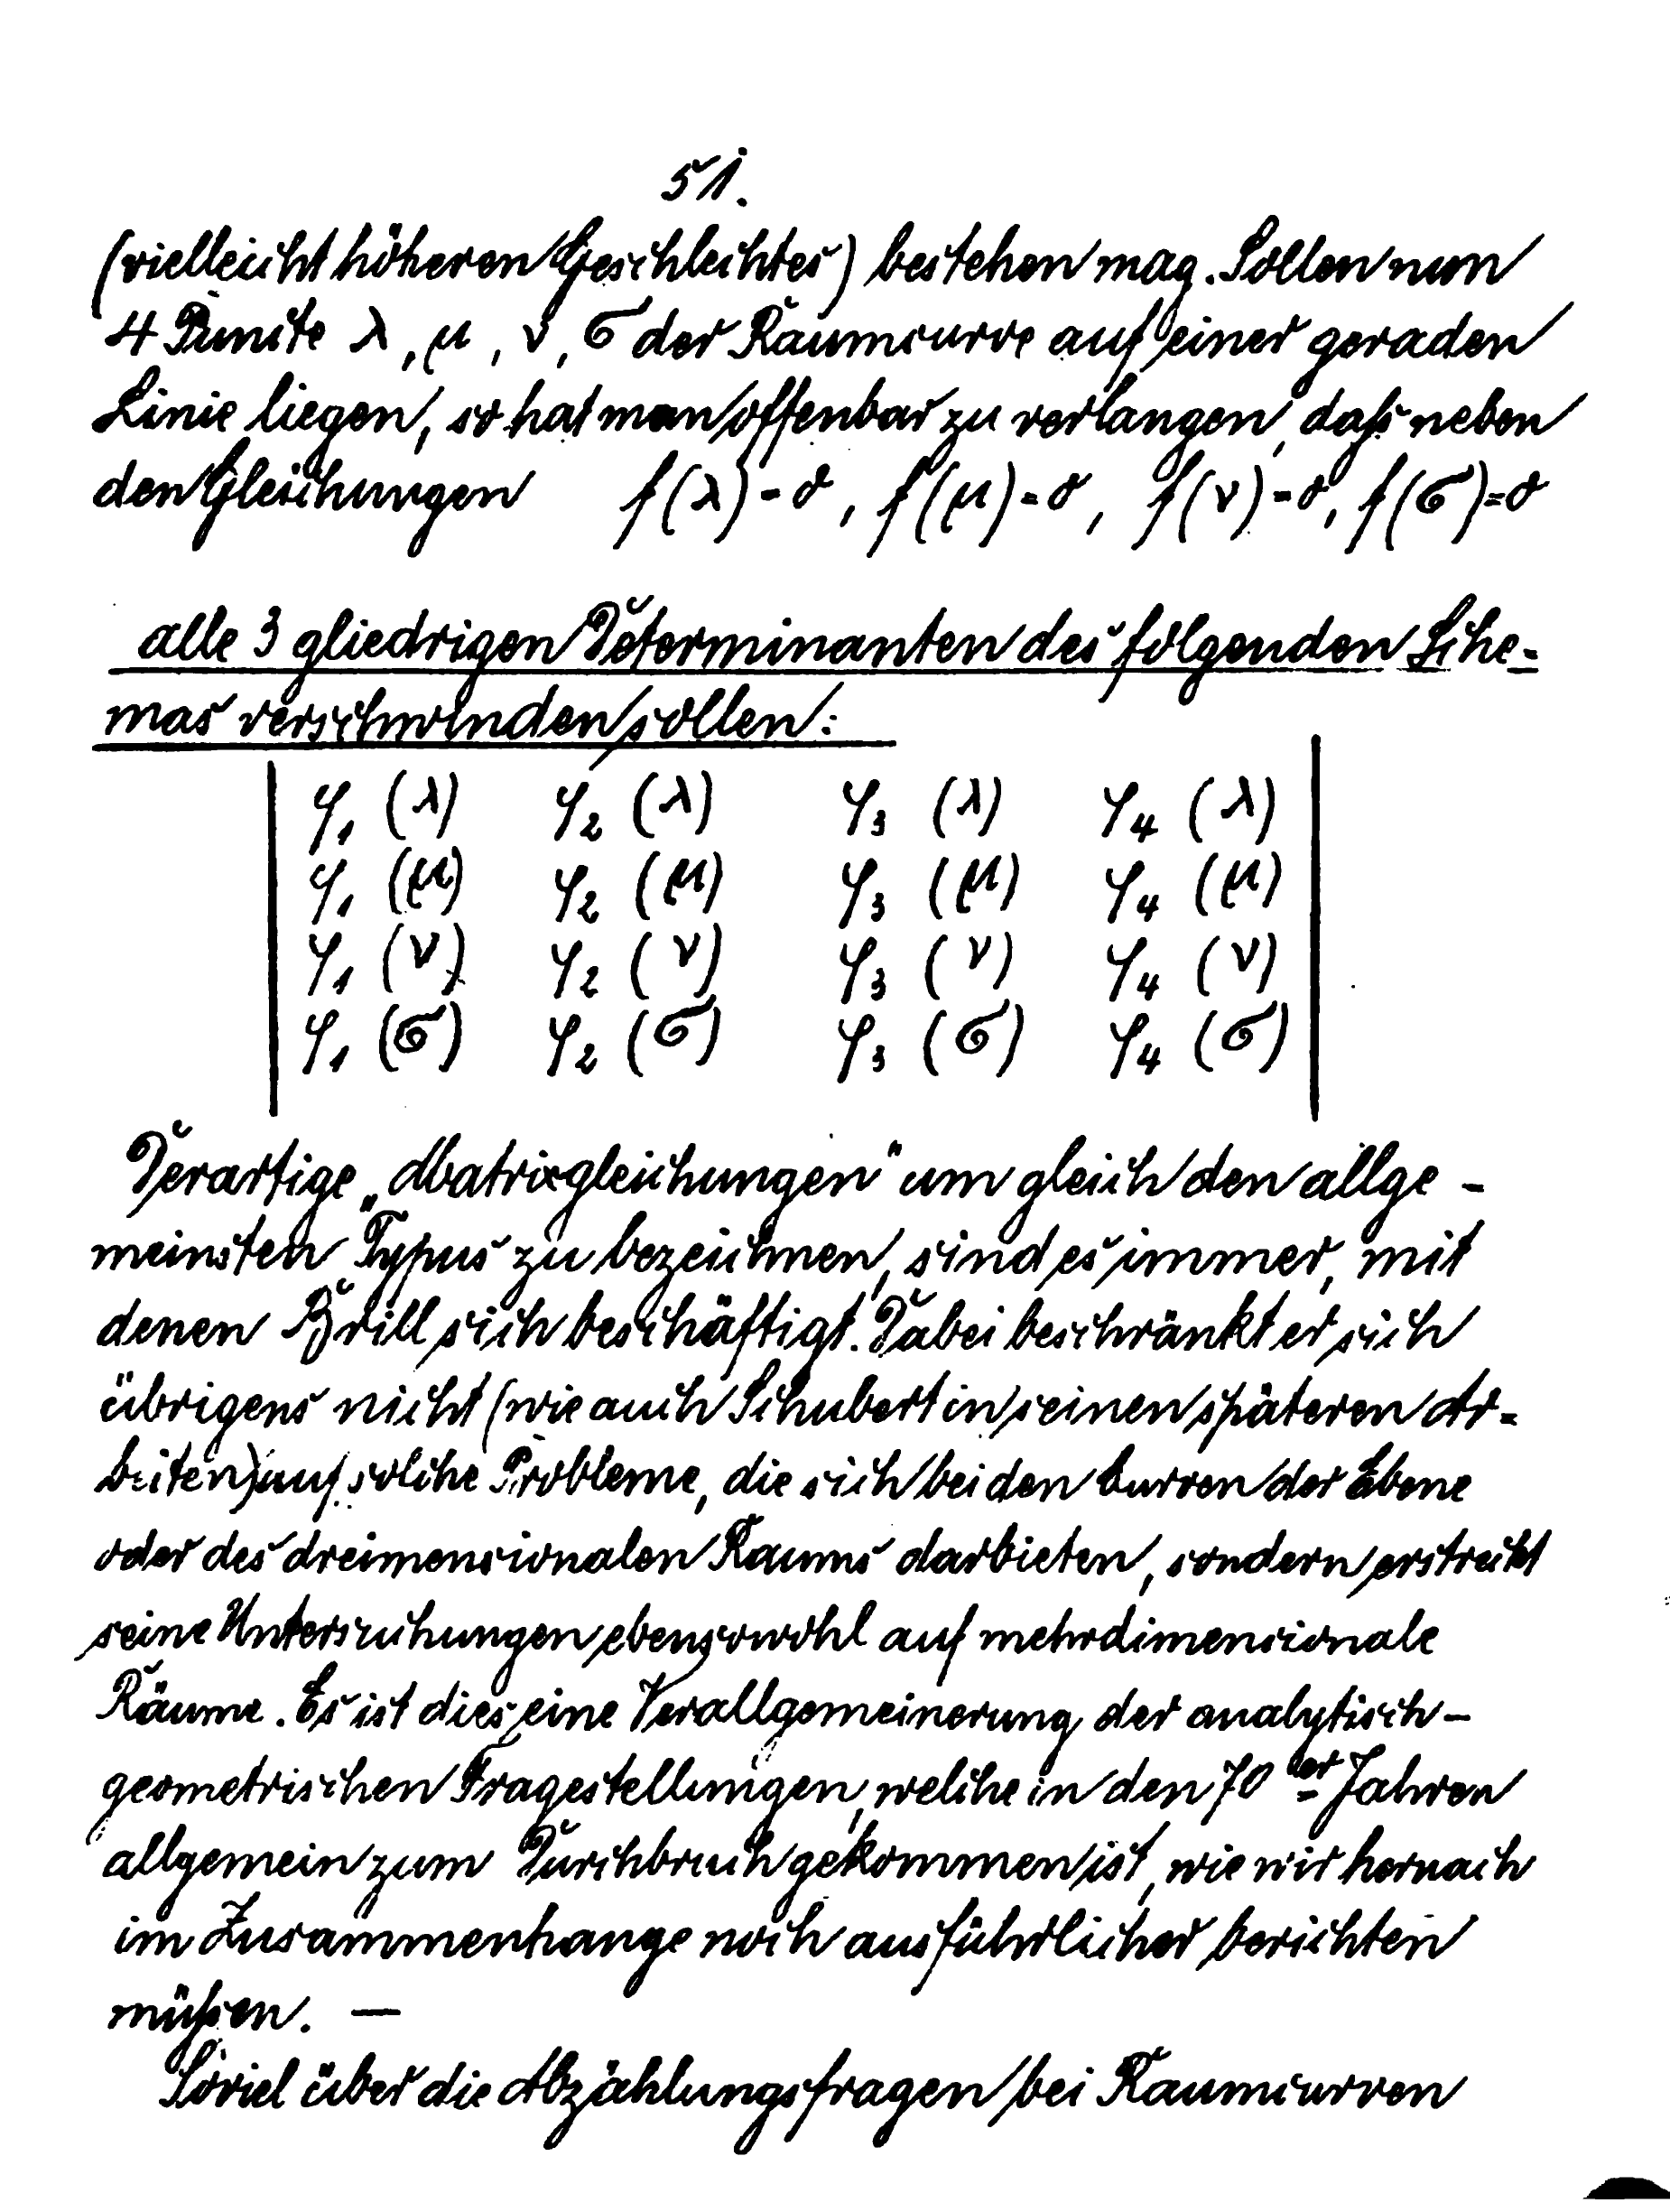 51.
(vielleicht höheren Geschlechtes) bestehen mag. Sollen nun
4 Puncte λ, μ, ν, σ der Raumcurve auf einer geraden
Linie liegen, so hat man offenbar zu verlangen, daß neben
den Gleichungen f(λ)=0, f(μ)=0, f(ν)=0, f(σ)=0
alle 3 gliedrigen Determinanten des folgenden Sche-
mas verschwinden sollen:
φ₁ (λ) φ₂ (λ) φ₃ (λ) φ₄ (λ)
φ₁ (μ) φ₂ (μ) φ₃ (μ) φ₄ (μ)
φ₁ (ν) φ₂ (ν) φ₃ (ν) φ₄ (ν)
φ₁ (σ) φ₂ (σ) φ₃ (σ) φ₄ (σ)
Derartige „Matrixgleichungen" um gleich den allge-
meinsten Typus zu bezeichnen, sind es immer, mit
denen Brill sich beschäftigt. Dabei beschränkt er sich
übrigens nicht (wie auch Schubert in seinen späteren Ar-
beiten) auf solche Probleme, die sich bei den Curven der Ebene
oder des dreimensionalen Raums darbieten, sondern erstreckt
seine Untersuchungen ebensowohl auf mehrdimensionale
Räume. Es ist dies eine Verallgemeinerung der analytisch-
geometrischen Fragestellungen, welche in den 70er Jahren
allgemein zum Durchbruch gekommen ist, wie wir hernach
im Zusammenhange noch ausführlicher berichten
müßen. —
Soviel über die Abzählungsfragen bei Raumcurven